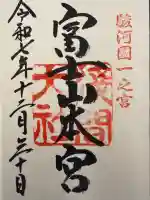 駿河國一之宮
富士山本宮
浅間
天社
令和七年十二月三十日